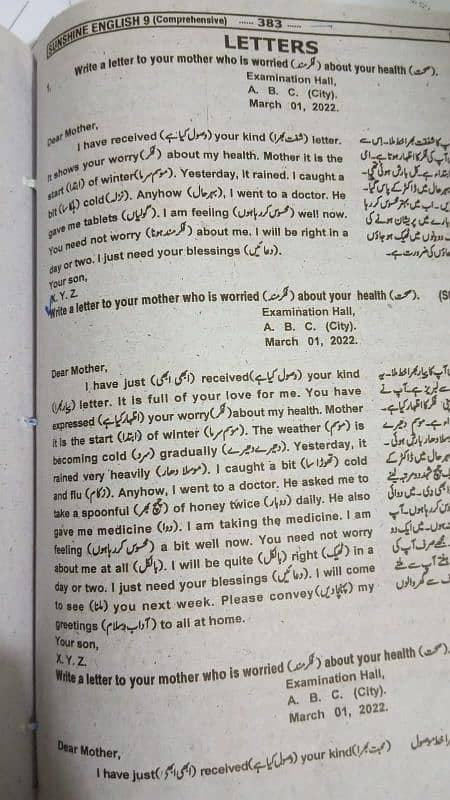 SUNSHINE ENGLISH 9 (Comprehensive) ...... 383 ......
LETTERS
1. Write a letter to your mother who is worried (فکرمند) about your health (صحت).
Examination Hall,
A. B. C. (City).
March 01, 2022.
Dear Mother,
I have received (وصول کیا ہے) your kind (شفقت بھرا) letter.
It shows your worry (فکر) about my health. Mother it is the
start (ابتدا) of winter (موسم سرما). Yesterday, it rained. I caught a
bit (ہلکا سا) cold (نزلہ). Anyhow (بہرحال), I went to a doctor. He
gave me tablets (گولیاں). I am feeling (محسوس کر رہا ہوں) well now.
You need not worry (فکرمند ہونا) about me. I will be right in a
day or two. I just need your blessings (دعائیں).
Your son,
X. Y. Z.
Write a letter to your mother who is worried (فکرمند) about your health (صحت).
Examination Hall,
A. B. C. (City).
March 01, 2022.
Dear Mother,
I have just (ابھی ابھی) received (وصول کیا ہے) your kind
(پیار بھرا) letter. It is full of your love for me. You have
expressed (اظہار کیا ہے) your worry (فکر) about my health. Mother
it is the start (ابتدا) of winter (موسم سرما). The weather (موسم) is
becoming cold (سرد) gradually (دھیرے دھیرے). Yesterday, it
rained very heavily (موسلا دھار). I caught a bit (تھوڑا سا) cold
and flu (زکام). Anyhow, I went to a doctor. He asked me to
take a spoonful (چمچ بھر) of honey twice (دوبار) daily. He also
gave me medicine (دوا). I am taking the medicine. I am
feeling (محسوس کر رہا ہوں) a bit well now. You need not worry
about me at all (بالکل). I will be quite (بالکل) right (ٹھیک) in a
day or two. I just need your blessings (دعائیں). I will come
to see (ملنا) you next week. Please convey (پہنچا دیں) my
greetings (آداب و سلام) to all at home.
Your son,
X. Y. Z.
Write a letter to your mother who is worried (فکرمند) about your health (صحت).
Examination Hall,
A. B. C. (City).
March 01, 2022.
Dear Mother,
I have just (ابھی ابھی) received (وصول کیا ہے) your kind (محبت بھرا)